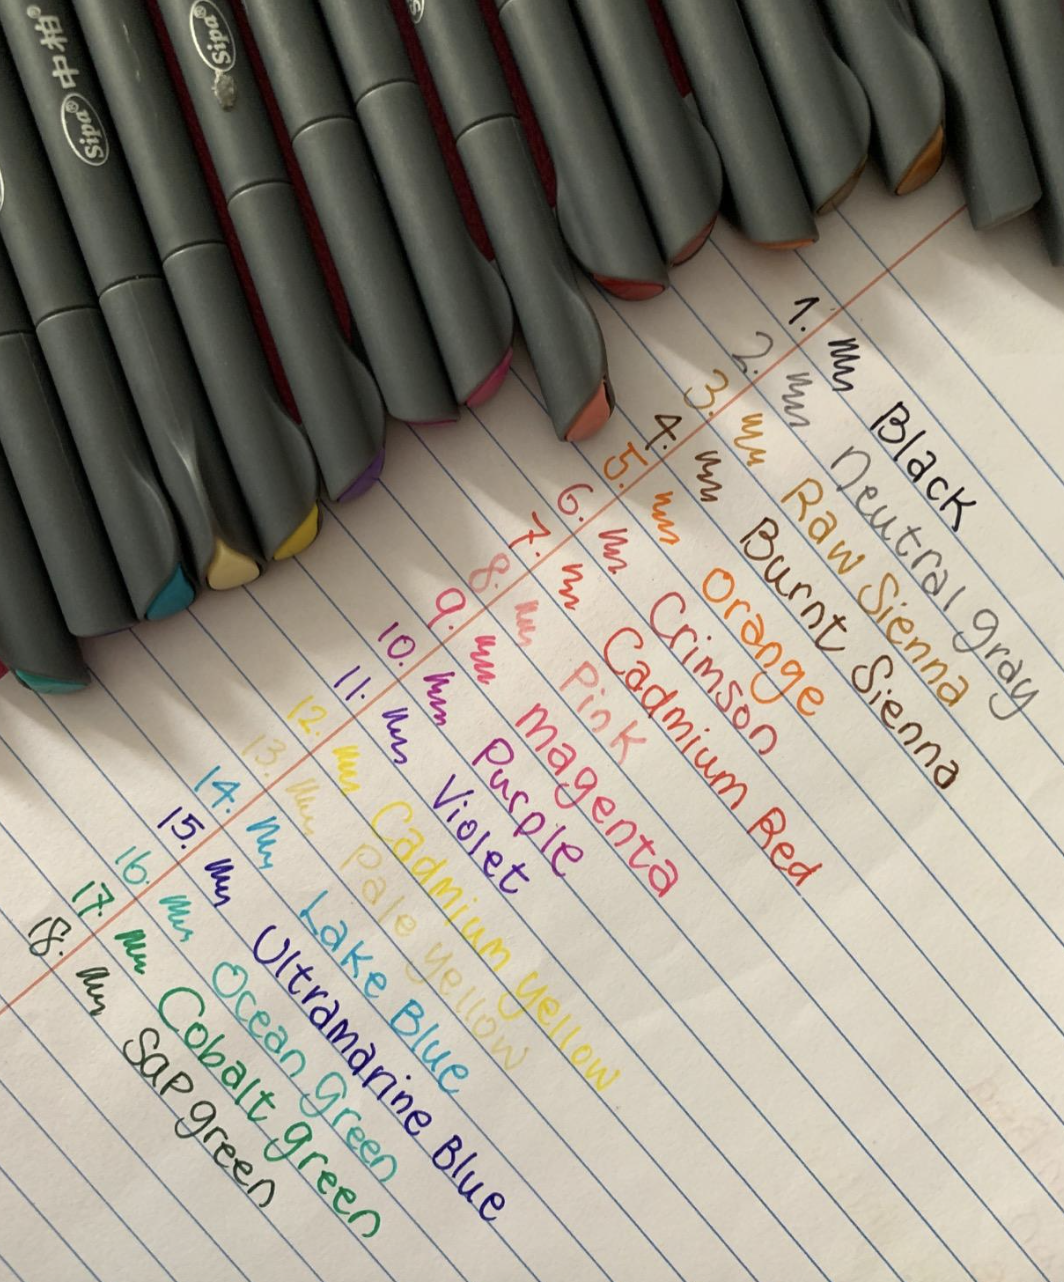 Sipa® 中柏
Sipa®
1. Black
2. neutral gray
3. Raw Sienna
4. Burnt Sienna
5. Orange
6. Crimson
7. Cadmium Red
8. Pink
9. magenta
10. Purple
11. Violet
12. Cadmium yellow
13. Pale yellow
14. Lake Blue
15. Ultramarine Blue
16. Ocean green
17. Cobalt green
18. Sap green